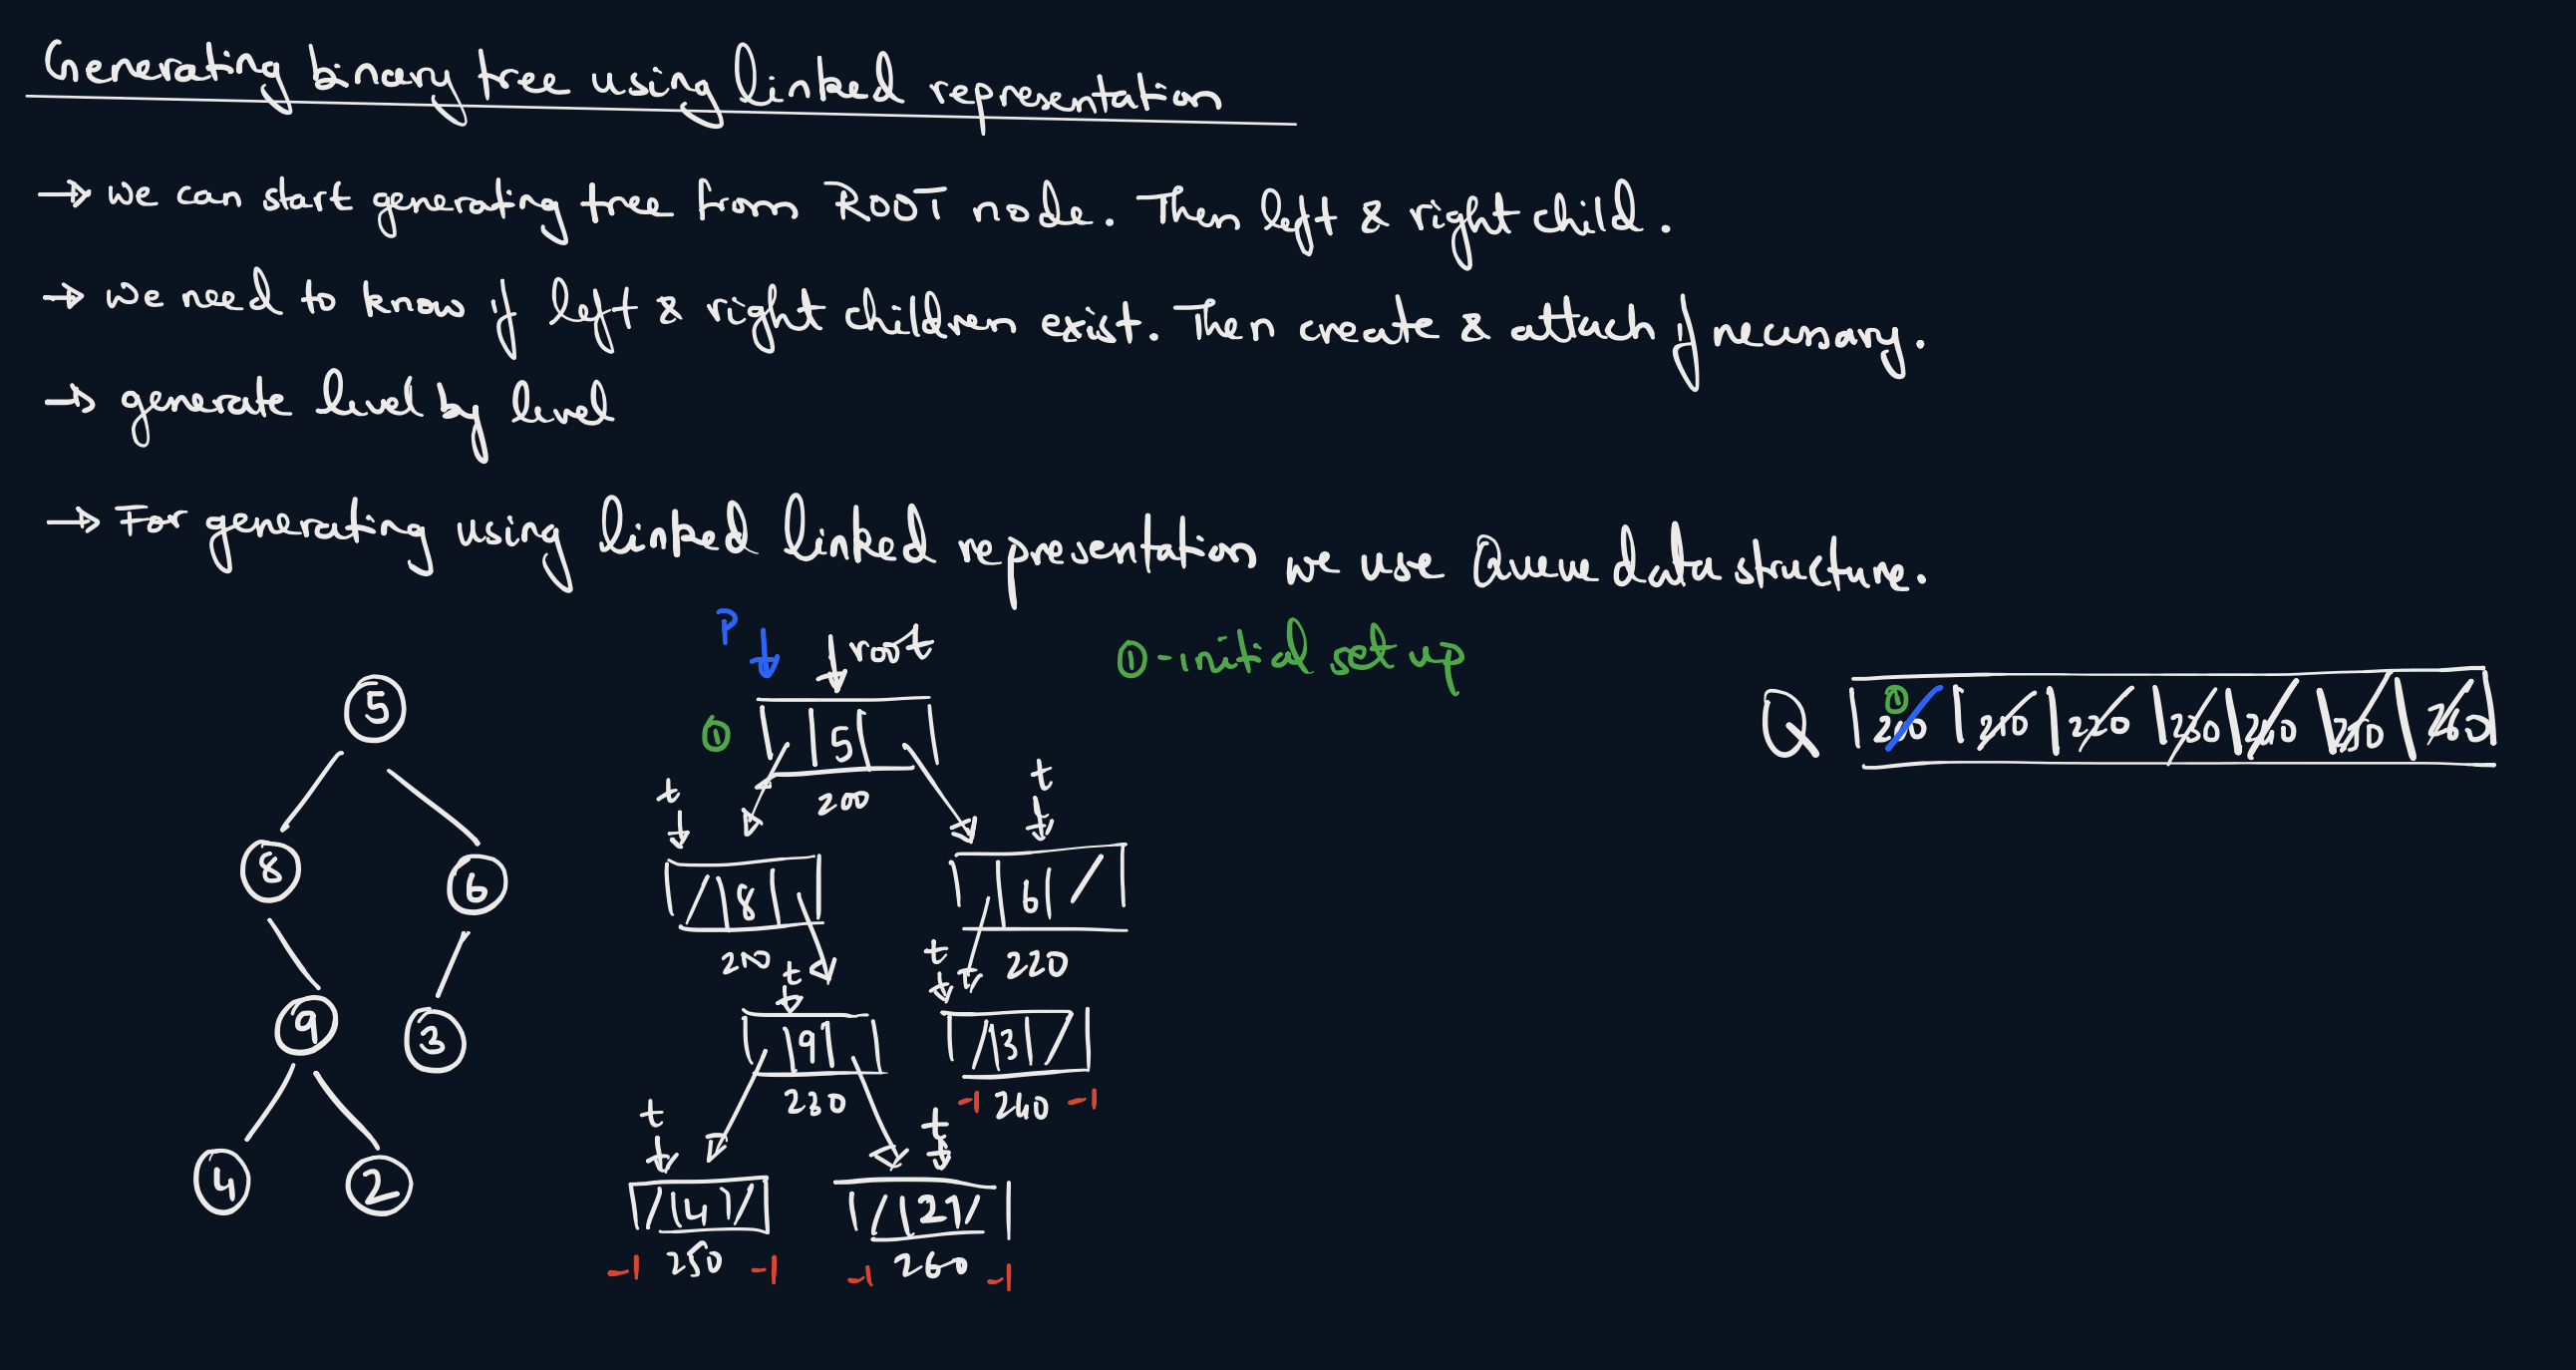 Generating binary tree using linked representation
→ we can start generating tree from ROOT node. Then left & right child.
→ we need to know if left & right children exist. Then create & attach if necessary.
→ generate level by level
→ For generating using linked linked representation we use Queue data structure.
P root ① - initial set up
5
① 5
Q ① 200 210 220 230 240 250 260
200
t t
8 6
8 6
210 220
t t
9 3
9 3
230 -1 240 -1
t t
4 2
4 2
-1 250 -1 -1 260 -1